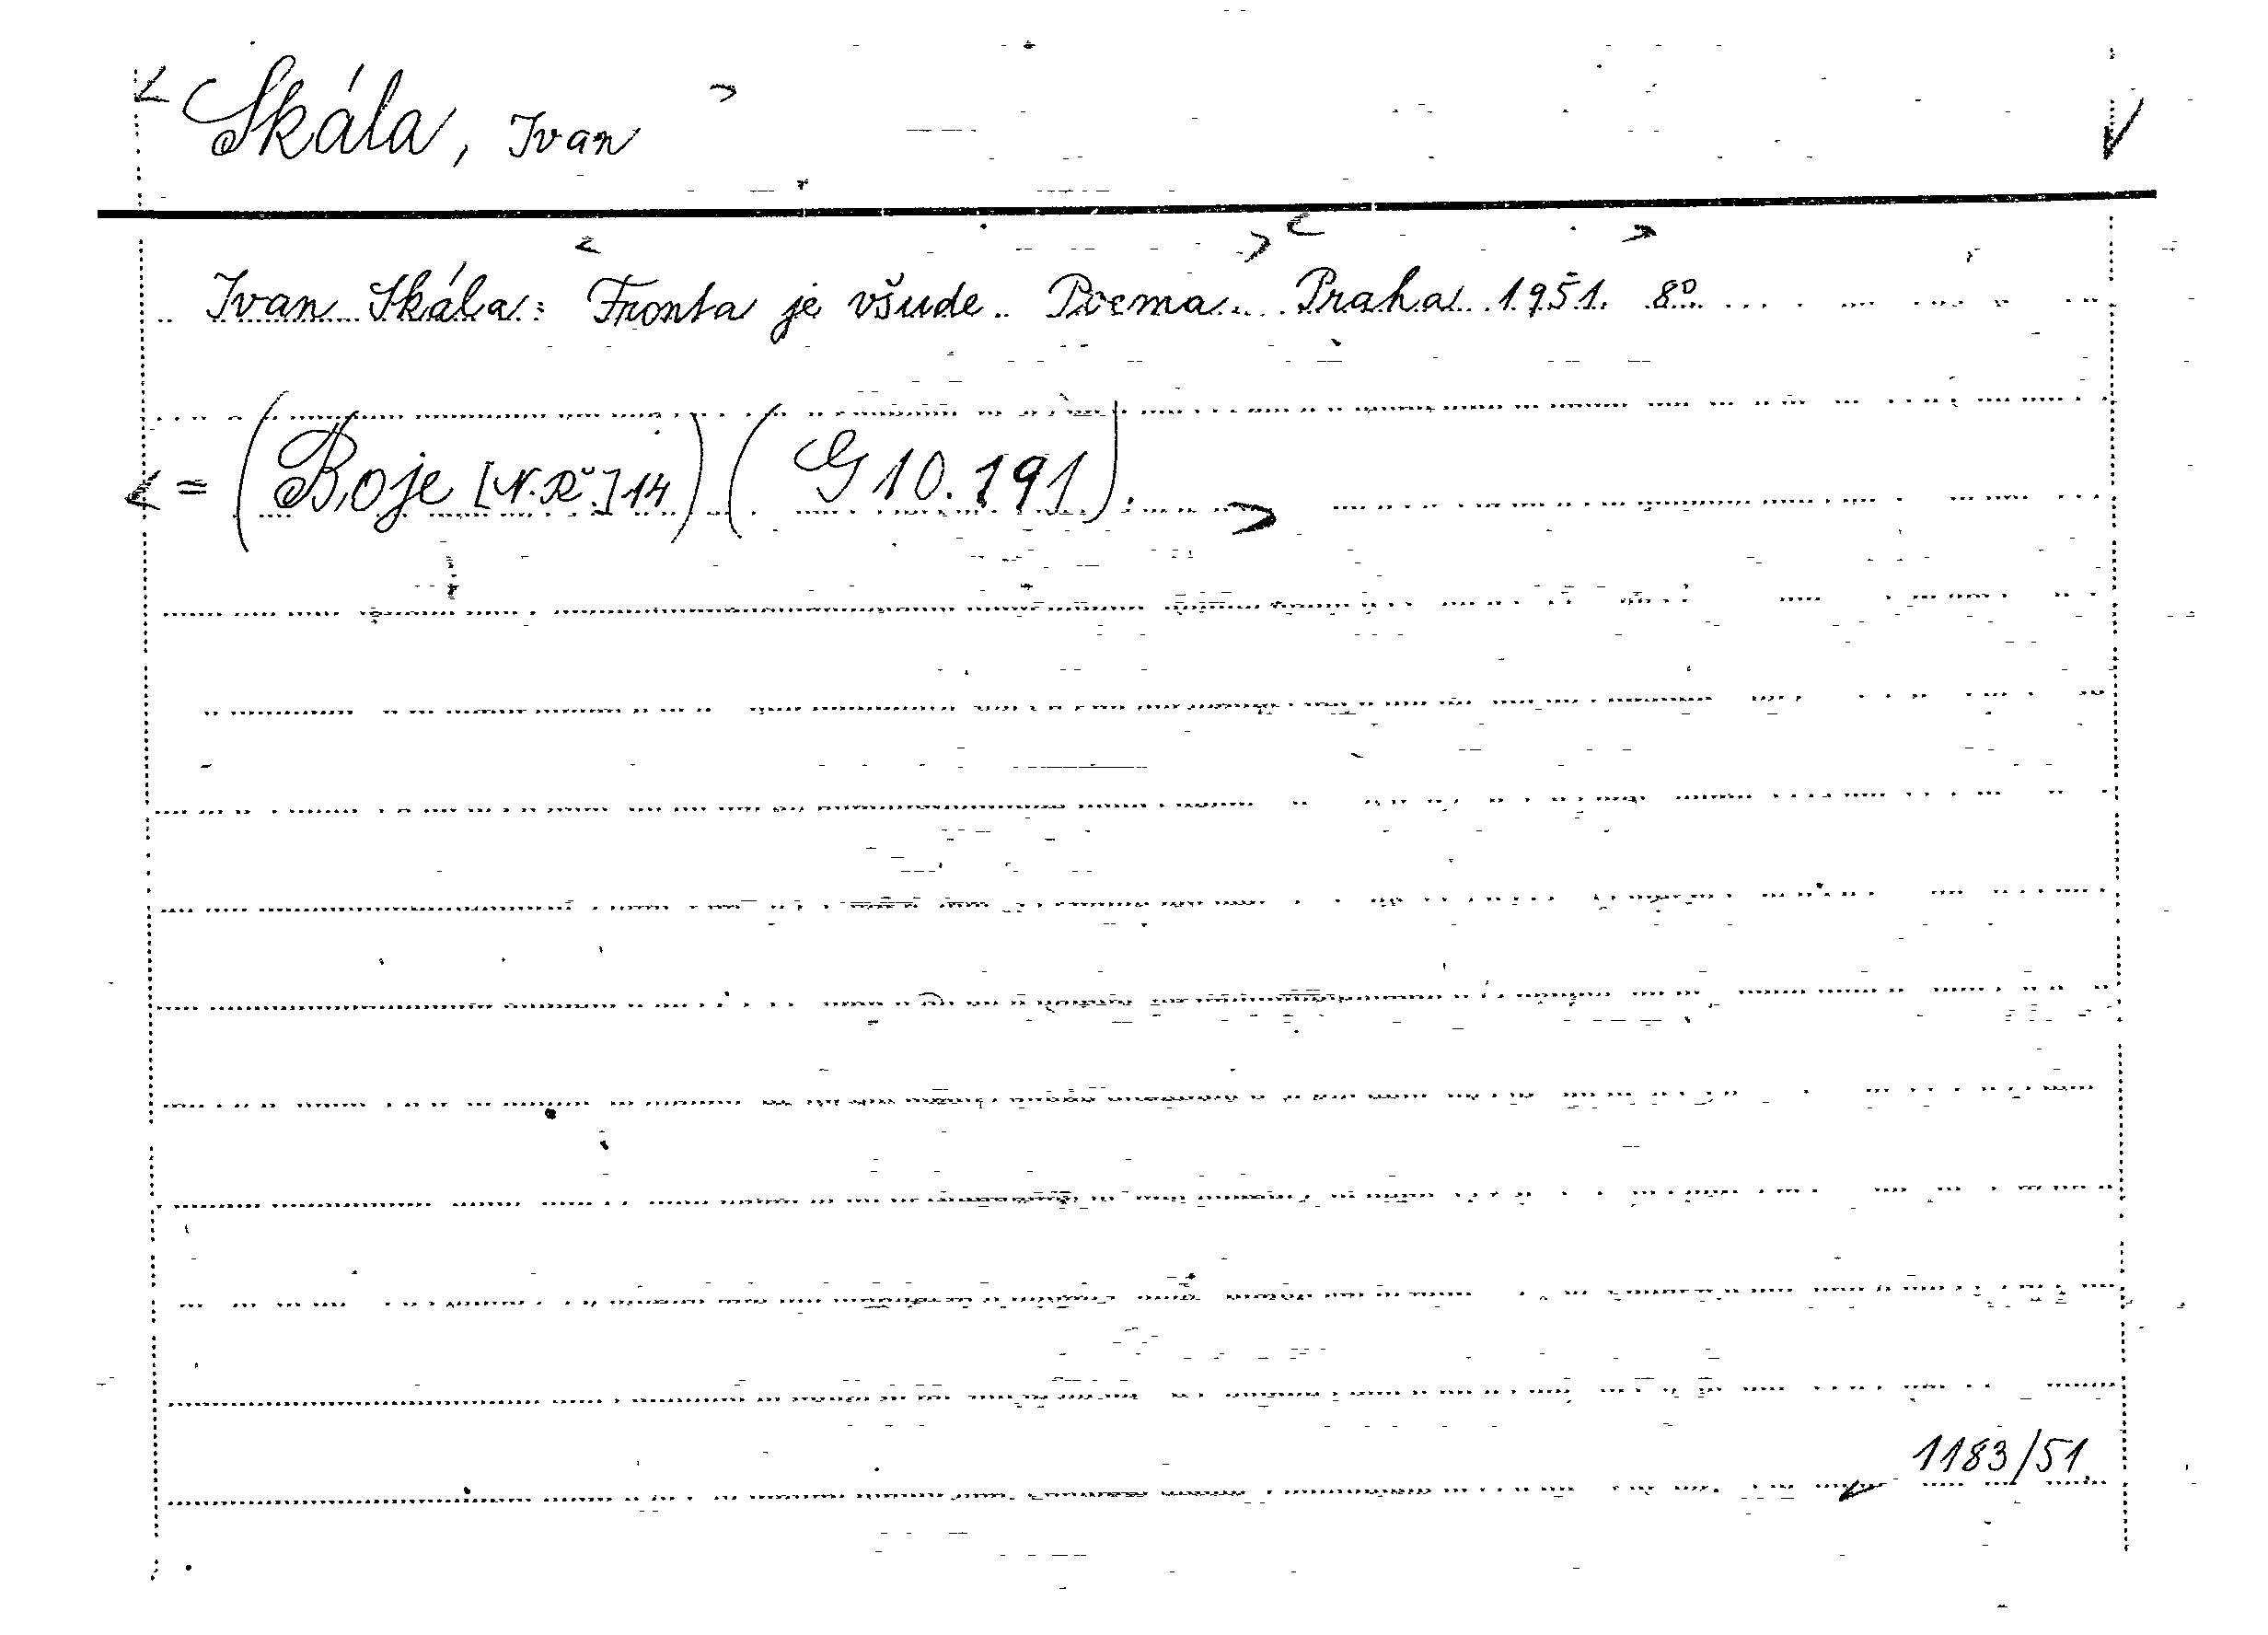 Skála, Ivan
Ivan Skála: Fronta je všude. Poema. Praha 1951. 8°.
= (Boje [N.Ř.] 14) (G 10.191).
1183/51